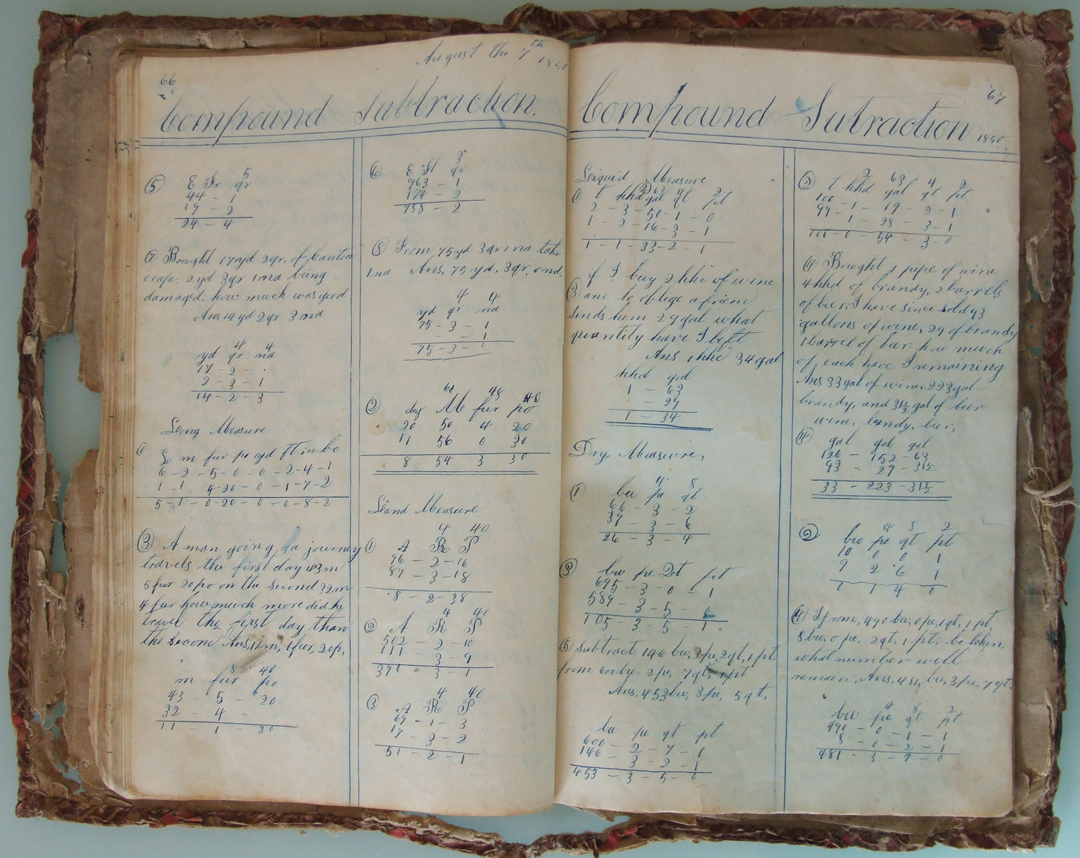 66
August the 7th
Compound Subtraction.
5 E Fr qr
44 - 1
19 - 2
24 - 4
7 Bought 17 yd 2 qr. of Canton
crape: 2 yd 3 qr 1 na being
damaged, how much was good
Ans 14 yd 2 qr 3 na
4 4
yd qr na
17 - 2 - .
2 - 3 - 1
14 - 2 - 3
Long Measure
m fur po yd ft in bc
6 - 2 - 5 - 0 - 0 - 2 - 4 - 1
5 - 1 - 0 - 20 - 0 - 0 - 8 - 2
3 A man going a journey
travels the first day 43 m
5 fur 20 po on the second 32 m
4 fur how much more did he
travel the first day than
the second Ans, 11 m, 1 fur, 20 p,
8 40
m fur po
43 - 5 - 20
32 - 4 -
11 - 1 - 20
6 E Fl qr
963 - 1
174 - 2
8 From 75 yd 3 qr 1 na take
1 na Ans, 75 yd, 3 qr, 0 na.
4 4
yd qr na
75 - 3 - 1
75 - 3 - 0
2 deg M fur po
20 50 4 20
11 56 0 30
8 54 3 30
Land Measure
4 40
1 A R P
96 - 2 - 16
87 - 3 - 18
8 - 2 - 38
4 40
2 A R P
502 - 2 - 10
111 - 3 - 9
390 - 3 - 1
4 40
3 A R P
69 - 1 - 3
17 - 3 - 2
51 - 2 - 1
67
Compound Sutraction
Liquid Measure
1 t hhd gal qt pt
2 - 3 - 50 - 1 - 0
1 - 2 - 16 - 3 - 1
1 - 1 - 33 - 2 - 1
3 if I buy 2 hhd of wine
and to oblige a friend
sends him 29 gal what
quantity have I left
Ans 1 hhd 34 gal
hhd gal
1 - 63
- 29
1 - 34
Dry Measure,
4 8
1 bu pe qt
66 - 3 - 2
39 - 3 - 6
26 - 3 - 4
3 bu pe qt pt
695 - 3 - 0 - 1
589 - 3 - 5 -
105 - 3 - 5 - 1
5 Subtract 146 bu, 3 pe, 2 qt, 1 pt
from 600 bu. 2 pe, 7 qt, 1 pt
Ans, 453 bu, 3 pe, 5 qt.
bu pe qt pt
600 - 2 - 7 - 1
146 - 3 - 2 - 1
453 - 3 - 5 - 0
2 63 4 2
t hhd gal qt pt
100 - 1 - 19 - 2 - 1
4 Bought 1 pipe of wine
4 hhd of brandy, 2 barrels
of beer. I have since sold 93
gallons of wine, 29 of brandy
1 barrel of beer: how much
of each have I remaining
Ans 33 gal of wine, 223 gal
brandy, and 31½ gal of beer
wine, brandy, beer,
4 gal gal gal
126 - 252 - 63
93 - 29 - 31½
33 - 223 - 31½
4 8 2
2 bu pe qt pt
10 0 0 1
9 2 6 1
0 1 4 0
4 If from, 490 bu, 0 pe, 1 qt, 1 pt,
8 bu, 0 pe, 2 qt, 1 pt. be taken,
what number well
remain. Ans. 481, bu, 3 pe, 7 qt.
4 8 2
bu pe qt pt
490 - 0 - 1 - 1
8 - 0 - 2 - 1
481 - 3 - 7 - 0